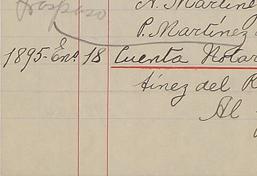 Traspaso
A. Martínez
P. Martínez
1895-Enº 18 Cuenta Notar
tínez del R
Al